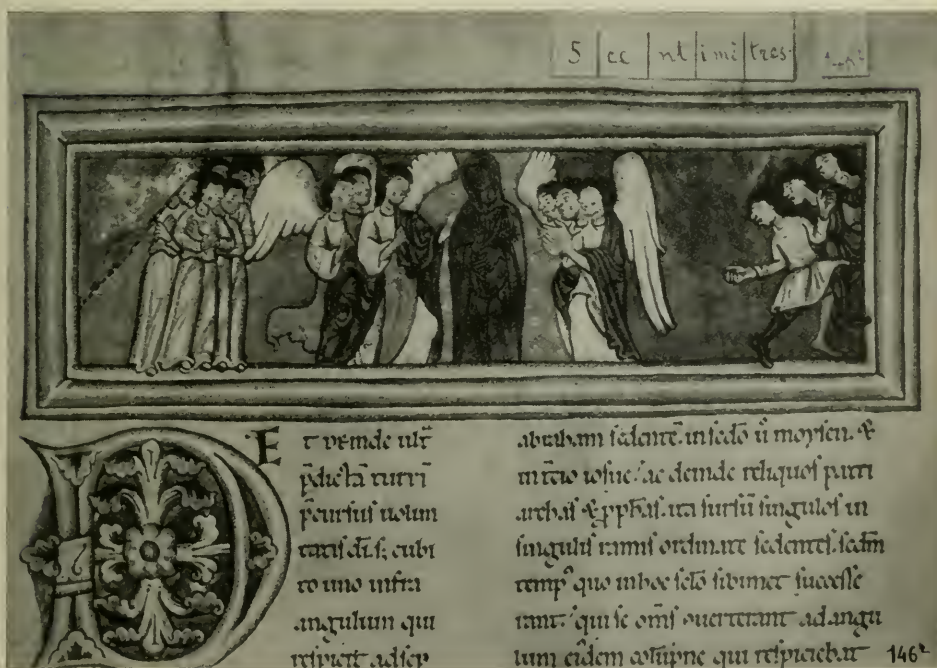 5 ce nt imi tres.
Et deinde ult̄
p̄dictā turrī
p̄cursus uolun
tatis dī. s; cubi
to uno infra
angulum qui
respicit ad sep
abraham sedentē. in sedo ū moysen. &
in t̄cio iosue. ac deinde reliquos patri
archas & pph̄as. ita sursū singulos in
singulis ramis ordinate sedentes. sedm
temp⁹ quo in hoc sc̄lo sibimet successe
rant. qui se om̄s cuerterant ad angu
lum eidem colūpne qui respiciebat
146ᵃ